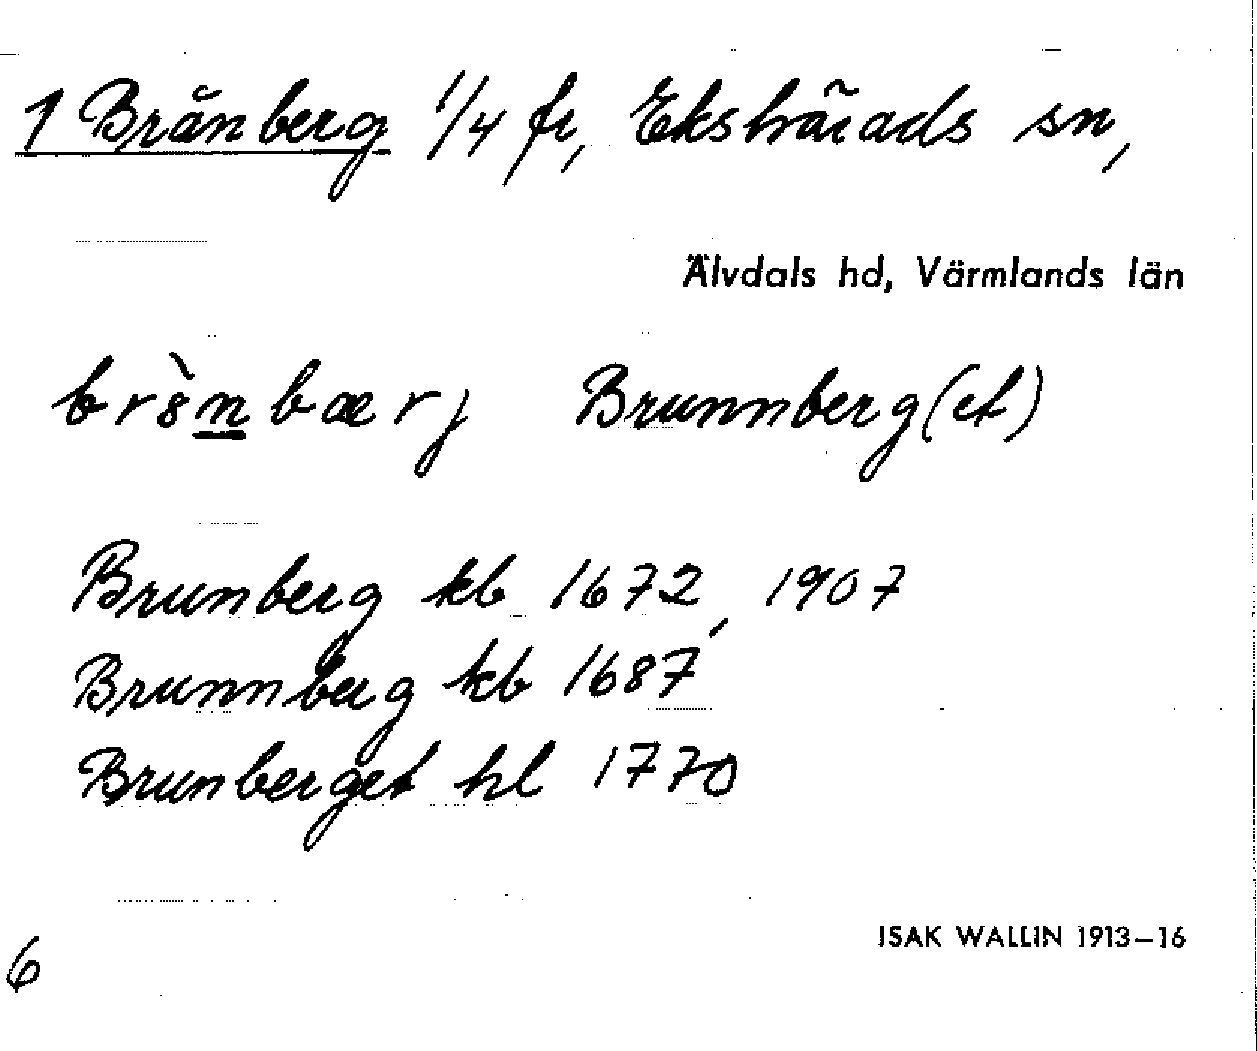 1 Brånberg 1/4 fr, Ekshärads sn,
Älvdals hd, Värmlands län
br8̀nbærj Brunnberg(et)
Brunberg kb 1672, 1907
Brunnberg kb 1687
Brunberget hl 1770
ISAK WALLIN 1913–16
6